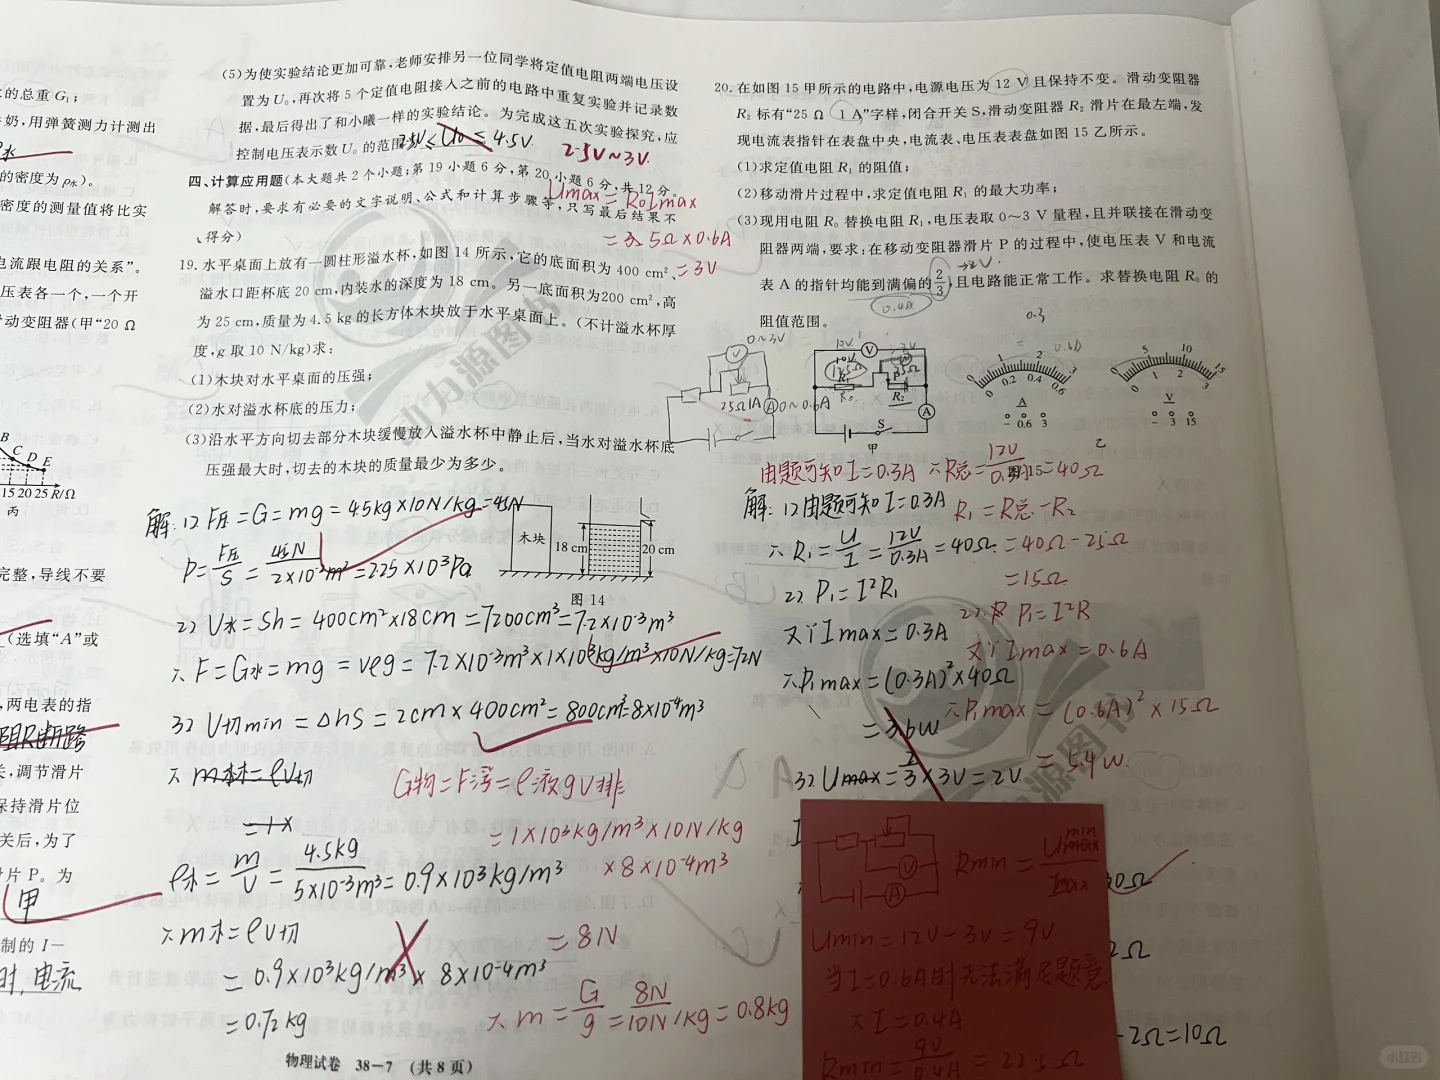 水的总重 G₁；
牛奶，用弹簧测力计测出
的密度为 ρ水）。
密度的测量值将比实
电流跟电阻的关系”。
压表各一个，一个开
滑动变阻器（甲“20 Ω
B
C
D
E
15 20 25 R/Ω
丙
完整，导线不要
（选填“A”或
，两电表的指
阻R断路
关，调节滑片
保持滑片位
关后，为了
片 P。为
甲
制的 I—
时，电流
(5)为使实验结论更加可靠，老师安排另一位同学将定值电阻两端电压设
置为 U₀，再次将 5 个定值电阻接入之前的电路中重复实验并记录数
据，最后得出了和小曦一样的实验结论。为完成这五次实验探究，应
控制电压表示数 U₀ 的范围 2.5V ≤ U₀ ≤ 4.5V.
2.5V~3V.
四、计算应用题（本大题共 2 个小题；第 19 小题 6 分，第 20 小题 6 分，共 12 分。
解答时，要求有必要的文字说明、公式和计算步骤等，只写最后结果不
得分）
Umax = R₀Imax
= 5Ω×0.6A
= 3V
19. 水平桌面上放有一圆柱形溢水杯，如图 14 所示，它的底面积为 400 cm²、
溢水口距杯底 20 cm，内装水的深度为 18 cm。另一底面积为200 cm²，高
为 25 cm，质量为 4.5 kg 的长方体木块放于水平桌面上。（不计溢水杯厚
度，g 取 10 N/kg）求：
(1)木块对水平桌面的压强；
(2)水对溢水杯底的压力；
(3)沿水平方向切去部分木块缓慢放入溢水杯中静止后，当水对溢水杯底
压强最大时，切去的木块的质量最少为多少。
木块
18 cm
20 cm
图 14
解：1) F压=G=mg=45kg×10N/kg=45N
P=F压/S=45N/2×10⁻²m²=2.25×10³Pa
2) V水=Sh=400cm²×18cm=7200cm³=7.2×10⁻³m³
∴F=G水=mg=vρg=7.2×10⁻³m³×1×10³kg/m³×10N/kg=72N
3) V切min=ΔhS=2cm×400cm²=800cm³=8×10⁻⁴m³
∴m木=ρV切
=1×
ρ木=m/V=4.5kg/5×10⁻³m³=0.9×10³kg/m³
∴m木=ρV切
=0.9×10³kg/m³×8×10⁻⁴m³
=0.72kg
G物=F浮=ρ液gV排
=1×10³kg/m³×10N/kg
×8×10⁻⁴m³
=8N
∴m=G/g=8N/10N/kg=0.8kg
物理试卷 38－7 （共 8 页）
20. 在如图 15 甲所示的电路中，电源电压为 12 V 且保持不变。滑动变阻器
R₂ 标有“25 Ω 1 A”字样，闭合开关 S，滑动变阻器 R₂ 滑片在最左端，发
现电流表指针在表盘中央，电流表、电压表表盘如图 15 乙所示。
(1)求定值电阻 R₁ 的阻值；
(2)移动滑片过程中，求定值电阻 R₁ 的最大功率；
(3)现用电阻 R₀ 替换电阻 R₁，电压表取 0～3 V 量程，且并联接在滑动变
阻器两端，要求：在移动变阻器滑片 P 的过程中，使电压表 V 和电流
→2V.
表 A 的指针均能到满偏的 2/3，且电路能正常工作。求替换电阻 R₀ 的
0.4A
阻值范围。
0~3V
V
25Ω1A
A
0~0.6A
12V
V
R₁
P
R₂
A
S
甲
0.3
1 2 3
0 0.2 0.4 0.6
A
－ 0.6 3
5 10 15
0 1 2 3
V
－ 3 15
乙
图 15
由题可知I=0.3A ∴R总=12V/0.3A=40Ω
解：1)由题可知I=0.3A
R₁=R总-R₂
∴R₁=U/I=12V/0.3A=40Ω
=40Ω-25Ω
=15Ω
2) P₁=I²R₁
2) P₁=I²R
又∵Imax=0.3A
又∵Imax=0.6A
∴P₁max=(0.3A)²×40Ω
∴P₁max=(0.6A)²×15Ω
=3.6W
=5.4W.
3) Umax=2/3×3V=2V
Rmin=Umin/Imax
Umin=12V-3V=9V.
当I=0.6A时无法满足题意
∴I=0.4A
Rmin=9V/0.4A=22.5Ω
30Ω
2Ω
-2Ω=10Ω
小红书